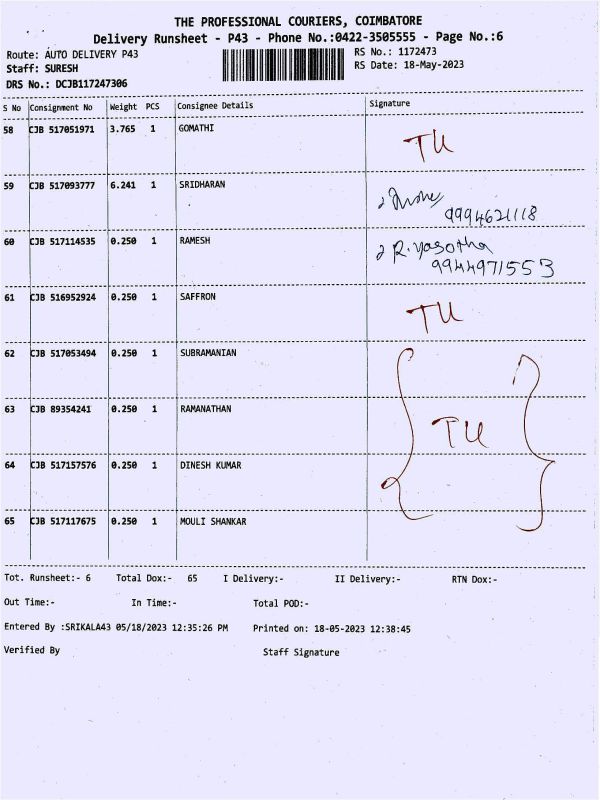 THE PROFESSIONAL COURIERS, COIMBATORE
Delivery Runsheet - P43 - Phone No.:0422-3505555 - Page No.:6
Route: AUTO DELIVERY P43 RS No.: 1172473
Staff: SURESH RS Date: 18-May-2023
DRS No.: DCJB117247306
S No Consignment No Weight PCS Consignee Details Signature
58 CJB 517051971 3.765 1 GOMATHI TU
59 CJB 517093777 6.241 1 SRIDHARAN
9994621118
60 CJB 517114535 0.250 1 RAMESH R.Yasotha
9944971553
61 CJB 516952924 0.250 1 SAFFRON TU
62 CJB 517053494 0.250 1 SUBRAMANIAN
63 CJB 89354241 0.250 1 RAMANATHAN TU
64 CJB 517157576 0.250 1 DINESH KUMAR
65 CJB 517117675 0.250 1 MOULI SHANKAR
Tot. Runsheet:- 6 Total Dox:- 65 I Delivery:- II Delivery:- RTN Dox:-
Out Time:- In Time:- Total POD:-
Entered By :SRIKALA43 05/18/2023 12:35:26 PM Printed on: 18-05-2023 12:38:45
Verified By Staff Signature